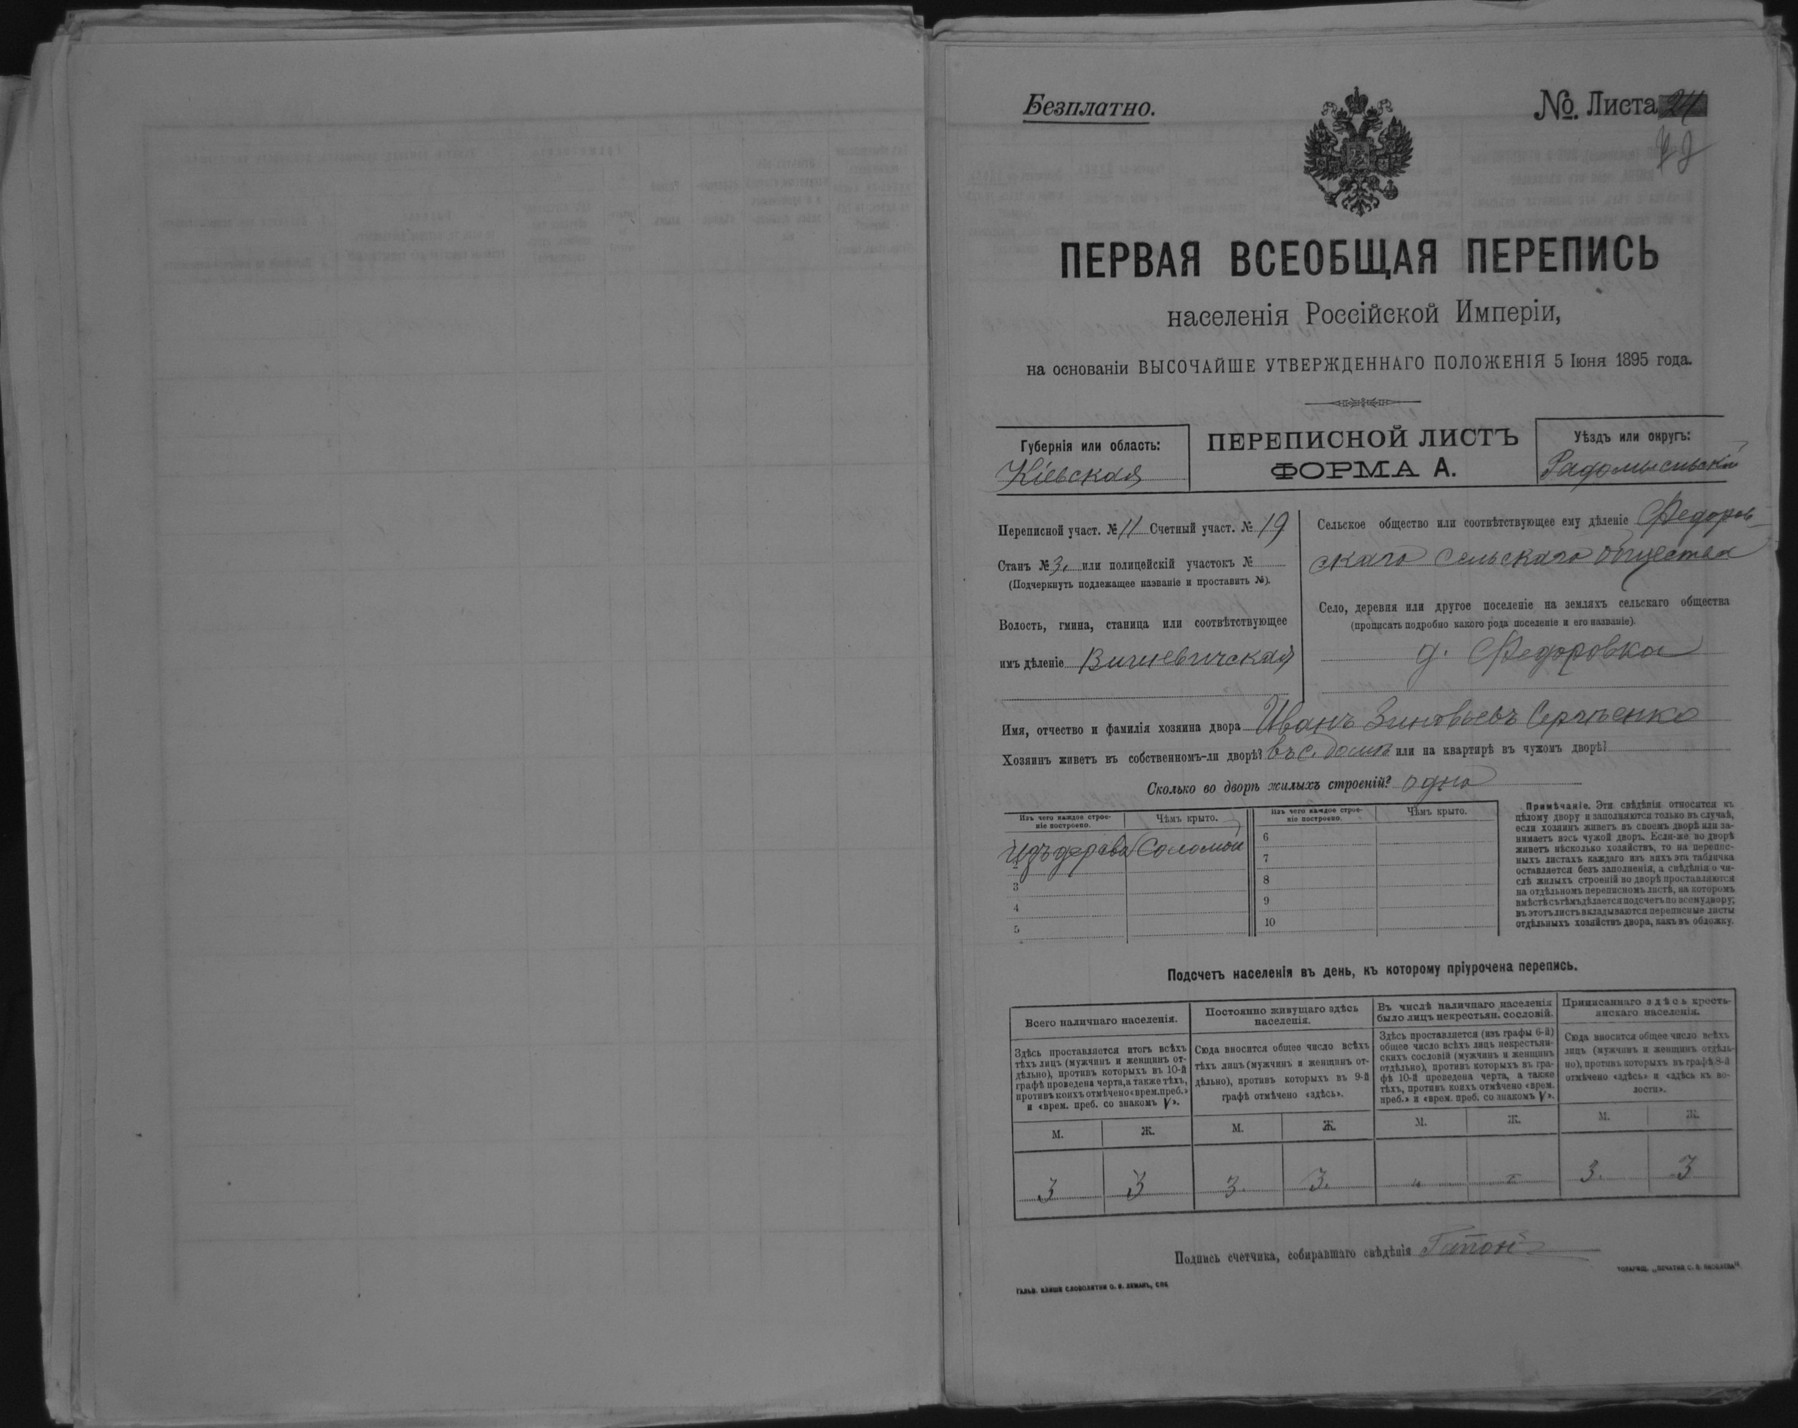 Безплатно.
№. Листа 24
ПЕРВАЯ ВСЕОБЩАЯ ПЕРЕПИСЬ
населенія Россійской Имперіи,
на основаніи ВЫСОЧАЙШЕ УТВЕРЖДЕННАГО ПОЛОЖЕНІЯ 5 Іюня 1895 года.
Губернія или область:
Кіевская
ПЕРЕПИСНОЙ ЛИСТЪ
ФОРМА А.
Уѣздъ или округъ:
Радомысльскій
Переписной участ. № 11 Счетный участ. № 19
Станъ № 3. или полицейскій участокъ №
(Подчеркнуть подлежащее названіе и проставить №).
Волость, гмина, станица или соотвѣтствующее
имъ дѣленіе Вишевичская
Сельское общество или соотвѣтствующее ему дѣленіе Федоров-
скаго сельскаго общества
Село, деревня или другое поселеніе на земляхъ сельскаго общества
(прописать подробно какого рода поселеніе и его названіе).
д. Федоровка
Имя, отчество и фамилія хозяина двора Иванъ Зиновьевъ
Хозяинъ живетъ въ собственномъ-ли дворѣ? въ с. домѣ или на квартирѣ въ чужомъ дворѣ?
Сколько во дворѣ жилыхъ строеній? одно
Изъ чего каждое строе-
ніе построено.
Чѣмъ крыто.
Изъ чего каждое строе-
ніе построено.
Чѣмъ крыто.
изъ дерева Соломой
3
4
5
6
7
8
9
10
Примѣчаніе. Эти свѣдѣнія относятся къ
цѣлому двору и заполняются только въ случаѣ,
если хозяинъ живетъ въ своемъ дворѣ или за-
нимаетъ весь чужой дворъ. Если-же во дворѣ
живетъ нѣсколько хозяйствъ, то на перепис-
ныхъ листахъ каждаго изъ нихъ эта табличка
оставляется безъ заполненія, а свѣдѣнія о чи-
слѣ жилыхъ строеній во дворѣ проставляются
на отдѣльномъ переписномъ листѣ, на которомъ
вмѣстѣ съ тѣмъ дѣлается подсчетъ по всему двору;
въ этотъ листъ вкладываются переписные листы
отдѣльныхъ хозяйствъ двора, какъ въ обложку.
Подсчетъ населенія въ день, къ которому пріурочена перепись.
Всего наличнаго населенія.
Здѣсь проставляется итогъ всѣхъ
тѣхъ лицъ (мужчинъ и женщинъ от-
дѣльно), противъ которыхъ въ 10-й
графѣ проведена черта, а также тѣхъ,
противъ коихъ отмѣчено «врем. преб.»
и «врем. преб. со знакомъ V».
Постоянно живущаго здѣсь
населенія.
Сюда вносится общее число всѣхъ
тѣхъ лицъ (мужчинъ и женщинъ от-
дѣльно), противъ которыхъ въ 9-й
графѣ отмѣчено «здѣсь».
Въ числѣ наличнаго населенія
было лицъ некрестьян. сословій.
Здѣсь проставляется (изъ графы 6-й)
общее число всѣхъ лицъ некрестьян-
скихъ сословій (мужчинъ и женщинъ
отдѣльно), противъ которыхъ въ гра-
фѣ 10-й проведена черта, а также
тѣхъ, противъ коихъ отмѣчено «врем.
преб.» и «врем. преб. со знакомъ V».
Приписаннаго здѣсь кресть-
янскаго населенія.
Сюда вносится общее число всѣхъ
лицъ (мужчинъ и женщинъ отдѣль-
но), противъ которыхъ въ графѣ 8-й
отмѣчено «здѣсь» и «здѣсь къ во-
лости».
М. Ж. М. Ж. М. Ж. М. Ж.
3 3 3. 3. „ „ 3. 3
Подпись счетчика, собиравшаго свѣдѣнія
ГАЛЬВ. КЛИШЕ СЛОВОЛИТНИ О. И. ЛЕМАНЪ, СПБ.